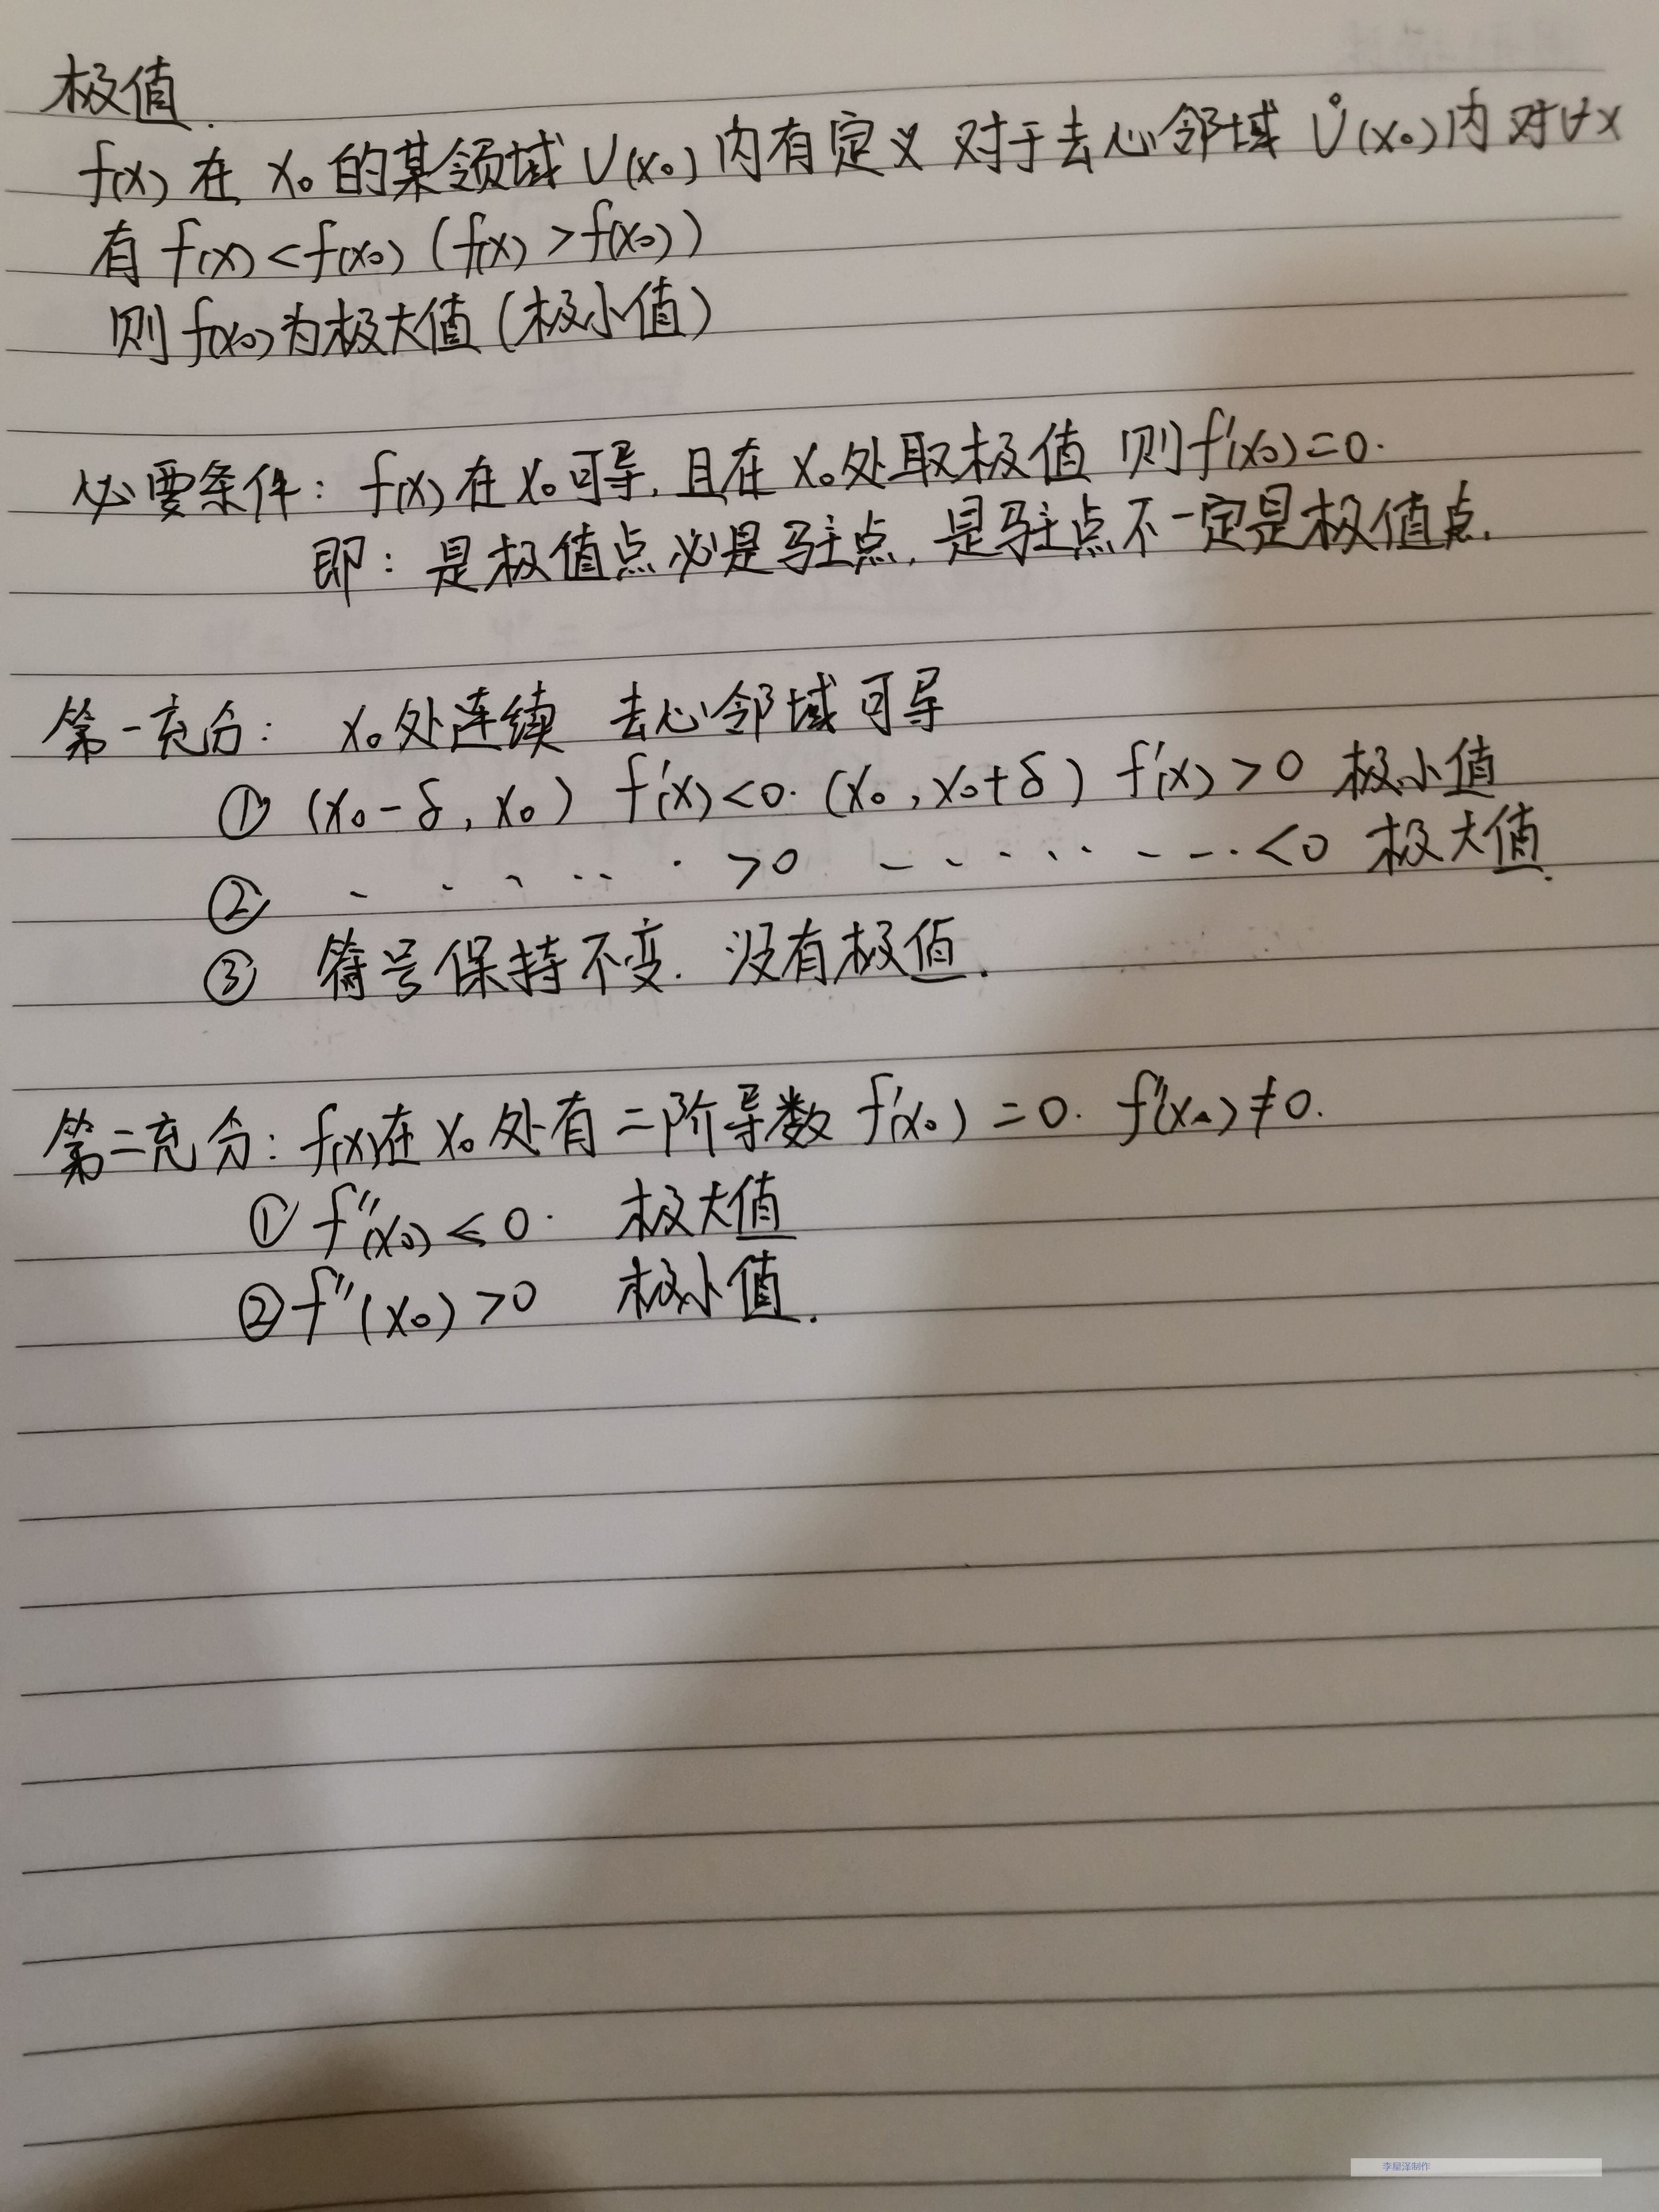 极值.
f(x) 在 x₀ 的某领域 U(x₀) 内有定义 对于去心邻域 Ů(x₀) 内 对∀x
有 f(x) < f(x₀) (f(x) > f(x₀))
则 f(x₀) 为极大值 (极小值)
必要条件: f(x) 在 x₀ 可导, 且在 x₀ 处取极值 则 f'(x₀) = 0.
即: 是极值点必是驻点, 是驻点不一定是极值点.
第一充分: x₀ 处连续 去心邻域可导
① (x₀-δ, x₀) f'(x) < 0. (x₀, x₀+δ) f'(x) > 0 极小值
② · · · · · · >0 - - · · · · - - · <0 极大值.
③ 符号保持不变. 没有极值.
第二充分: f(x)在 x₀ 处有二阶导数 f'(x₀) = 0. f''(x₀) ≠ 0.
① f''(x₀) < 0. 极大值
② f''(x₀) > 0 极小值.
李星泽制作